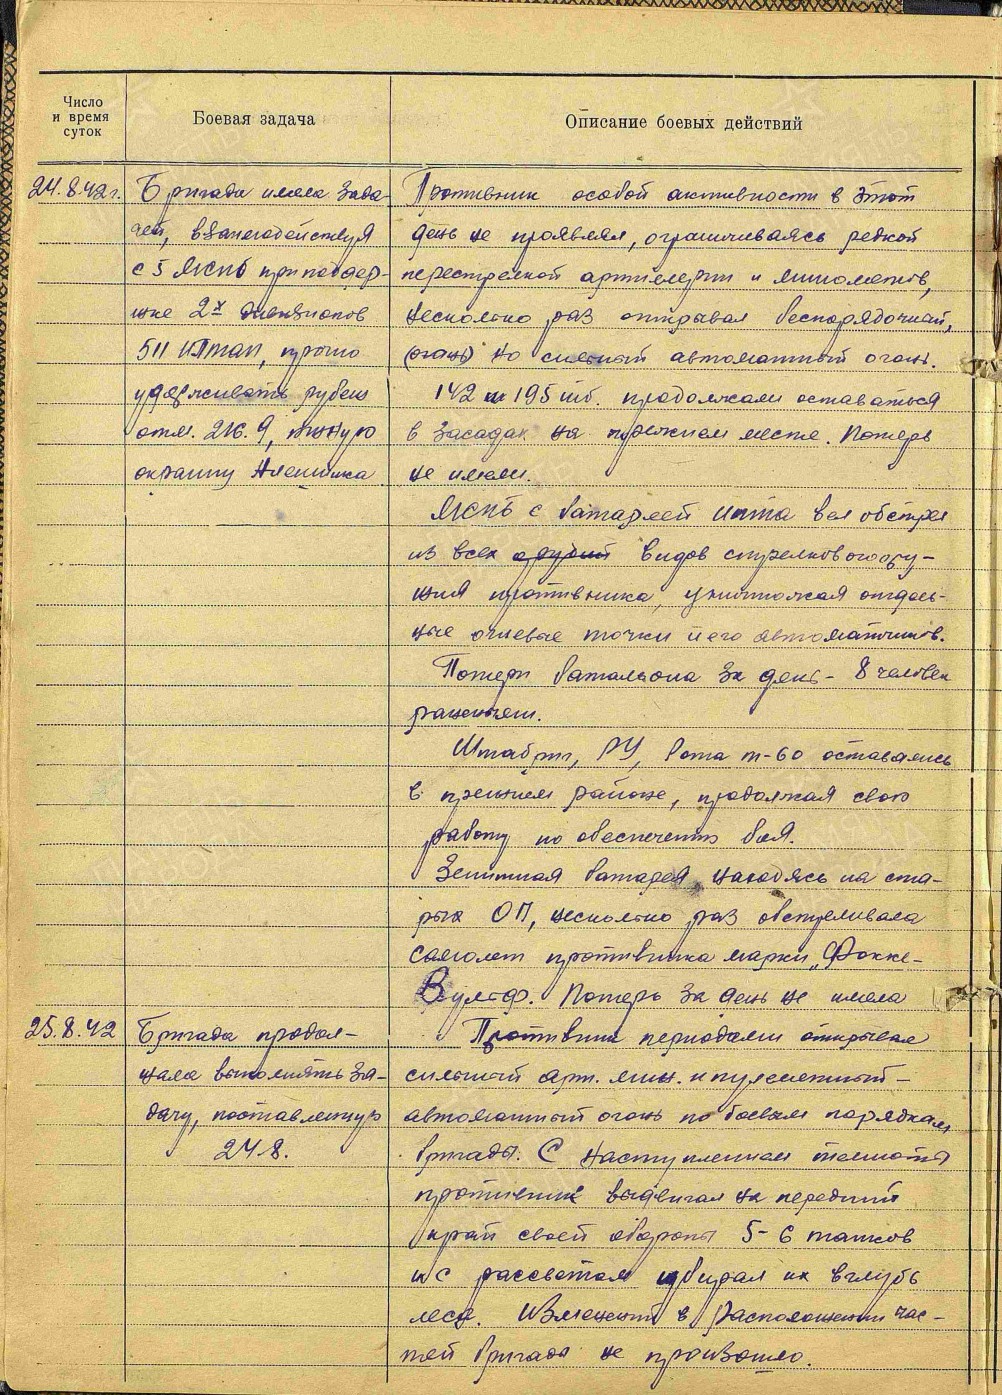 Число
и время
суток
Боевая задача
Описание боевых действий
24.8.42г.
Бригада имела зада-
чей, взаимодействуя
с 5 МСПБ при поддер-
жке 2х дивизионов
511 ИПтап, прочно
удерживать рубеж
отм. 216.9, южную
окраину Алешинка.
Противник особой активности в этот
день не проявлял, ограничиваясь редкой
перестрелкой артиллерии и минометов,
несколько раз открывал беспорядочный,
(огонь) но сильный автоматный огонь.
142 и 195 тб. продолжали оставаться
в засадах на прежнем месте. Потерь
не имели.
МСПБ с батареей ипта вел обстрел
из всех орудий видов стрелкового ору-
жия противника, уничтожая отдель-
ные огневые точки и его автоматчиков.
Потери батальона за день - 8 человек
ранеными.
Штабриг, РУ, рота т-60 оставались
в прежнем районе, продолжая свою
работу по обеспечению боя.
Зенитная батарея находясь на ста-
рых ОП, несколько раз обстреливала
самолет противника марки "Фокке-
Вульф. Потерь за день не имела
25.8.42
Бригада продол-
жала выполнять за-
дачу, поставленную
24.8.
Противник периодами открывал
сильный арт. мин. и пулеметный-
автоматный огонь по боевым порядкам
бригады. С наступлением темноты
противник выдвигал на передний
край своей обороны 5-6 танков
и с рассветом убирал их вглубь
леса. Изменений в расположении час-
тей бригады не произошло.